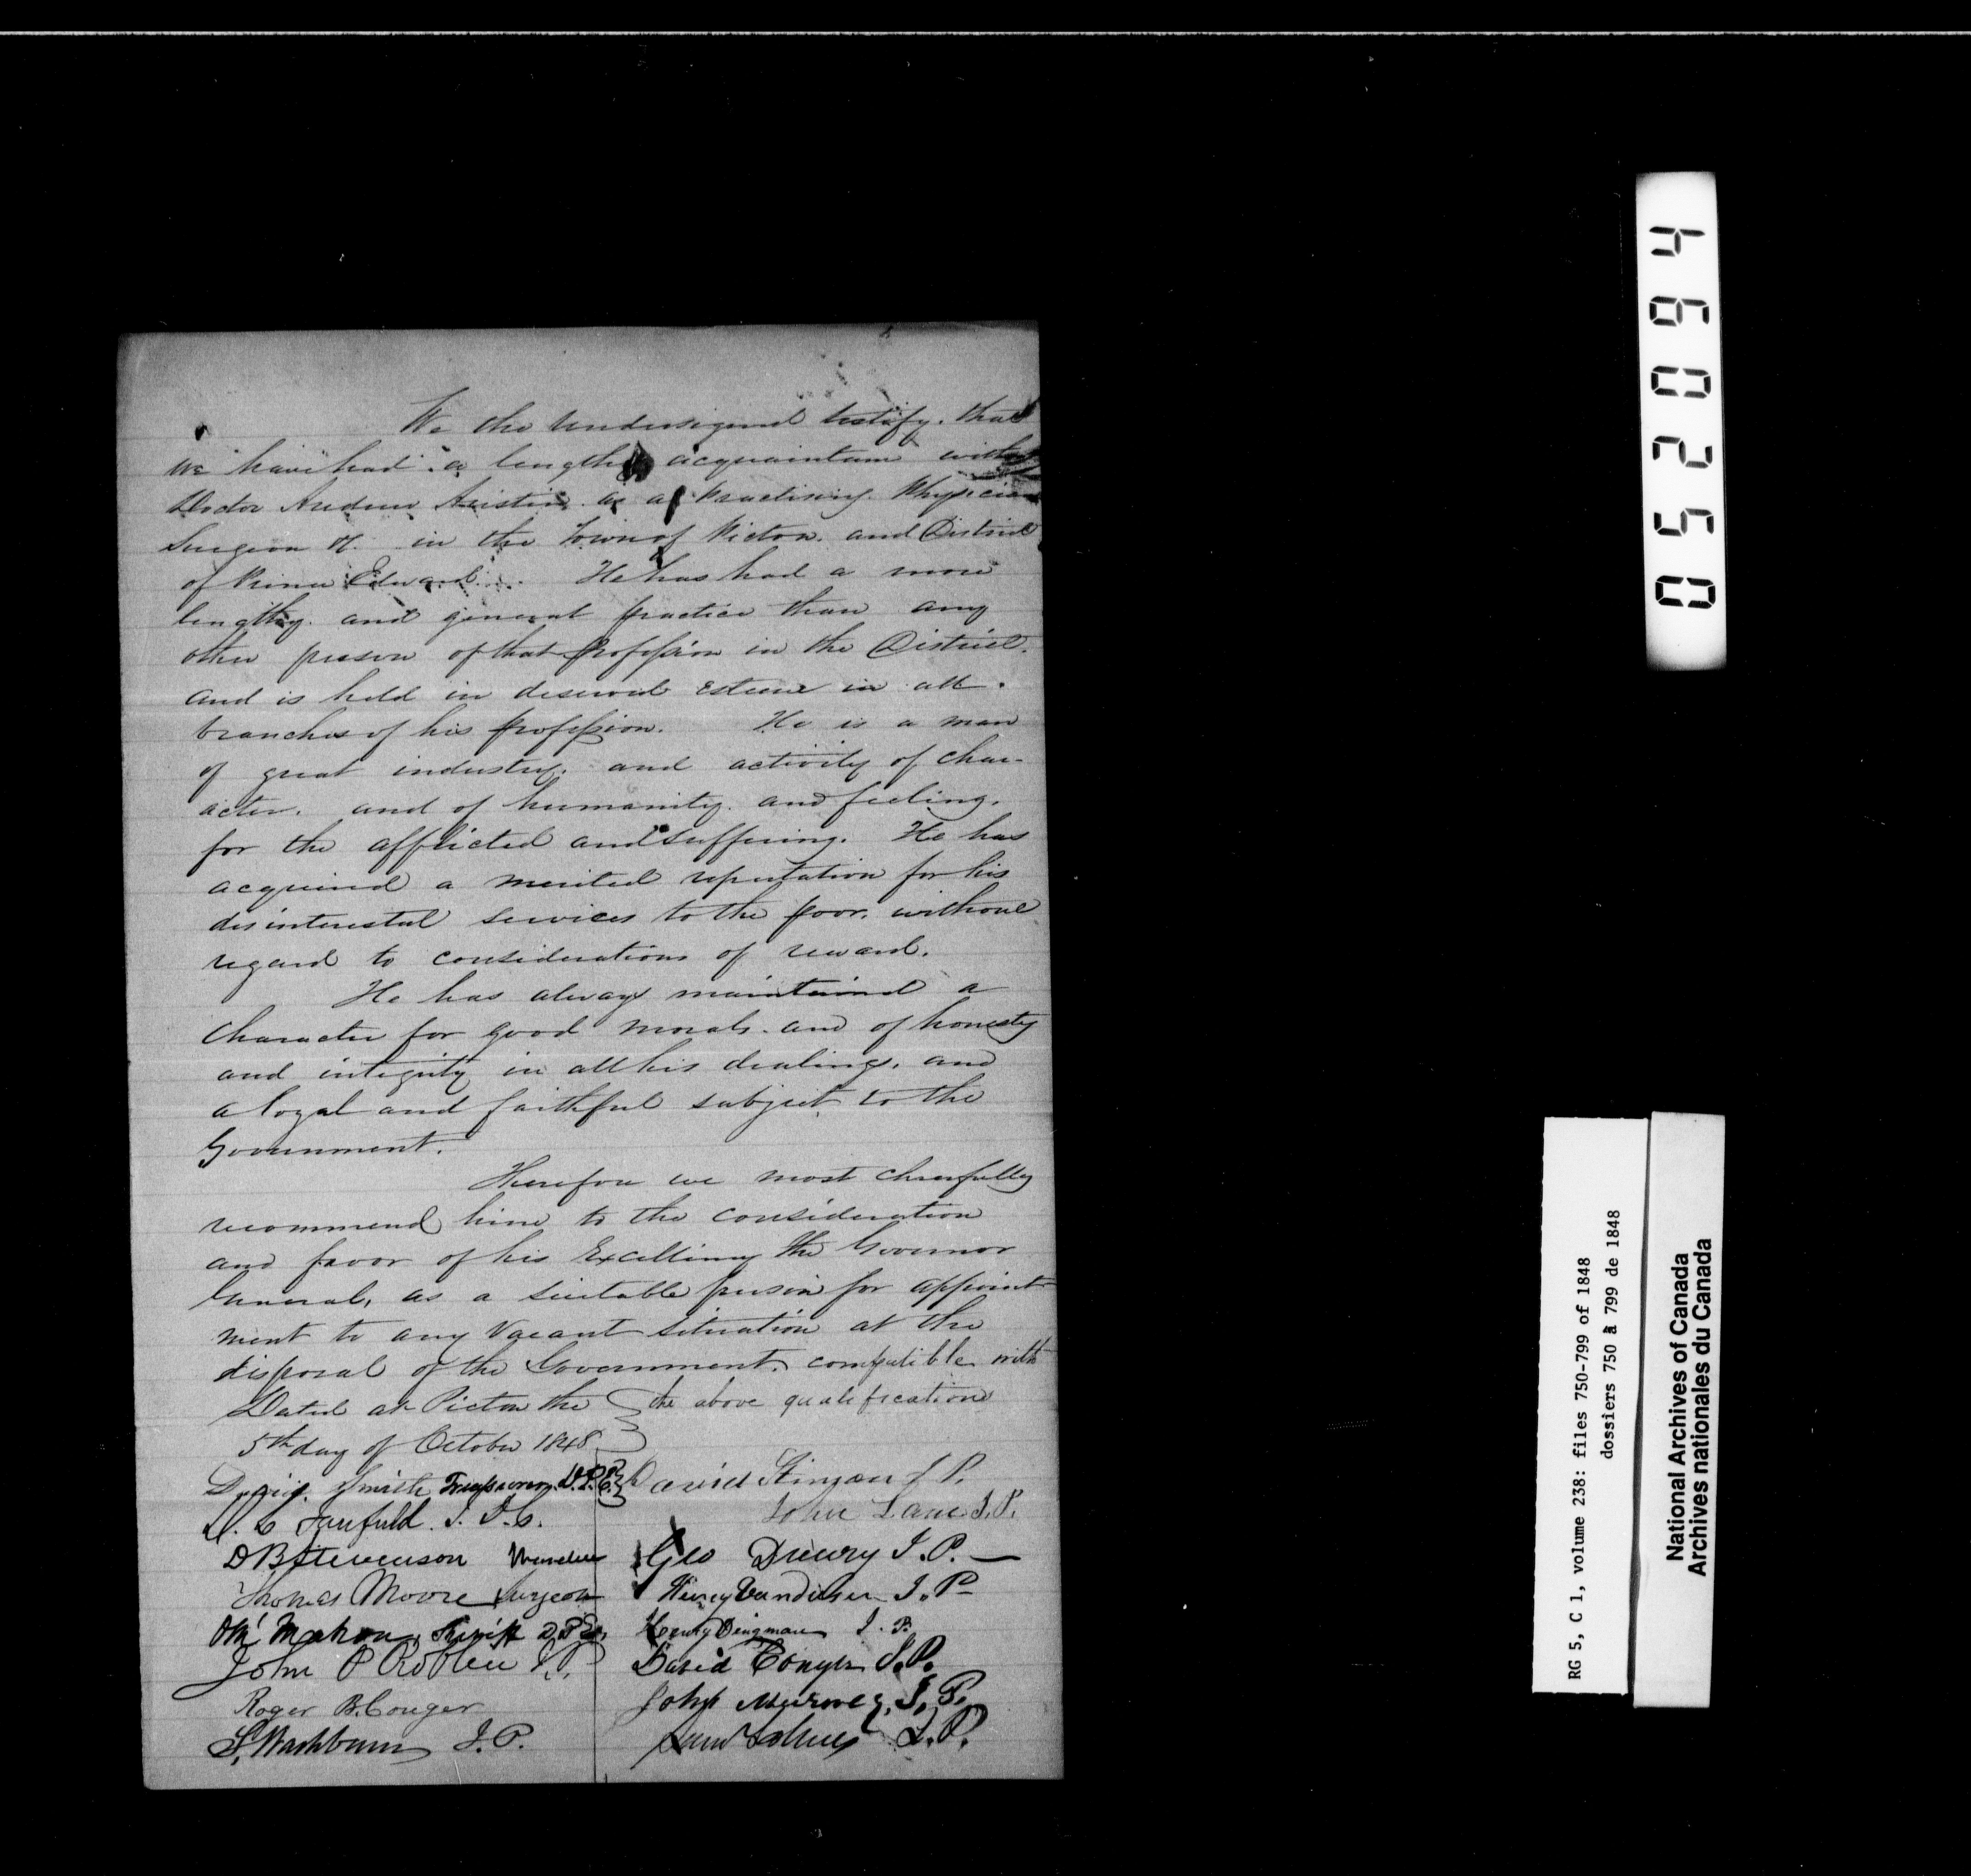 We the Undersigned testify. that
we have had a lengthy acquaintance with
Doctor Andrew Austin as a Practising Physician
Surgeon &. in the Town of Picton. and District
of Prince Edward. He has had a more
lengthy. and general practice than any
other person of that profession in the District.
and is held in deserved esteem in all
branches of his profession. He is a man
of great industry. and activity of char-
acter. and of humanity. and feeling.
for the afflicted and suffering. He has
acquired a merited reputation for his
disinterested services to the poor. without
regard to considerations of reward.
He has always maintained a
character for good morals. and of honesty
and integrity in all his dealings. and
a loyal and faithful subject to the
Government.
Therefore we most chearfully
recommend him to the consideration
and favor of his Excellency the Governor
General, as a suitable person for appoint
ment to any Vacant situation at the
disposal of the Government. compatible with
the above qualification
Dated at Picton the
5th day of October 1848
David Smith Treasurer D.P.E.
D. B Stevenson Warden
Thomas Moore Surgeon
Mahon, Sheriff D.P.E.
John P Roblin J.P.
Roger B. Conger
S. Washburn J.P.
David Stinson J P.
John Lane J.P.
Geo Drewry J.P.
Henry Vandusen J.P
Henry Dingman J.P.
David Conger J.P.
John J.P.
J.P.
052094
RG 5, C 1, volume 238: files 750-799 of 1848
dossiers 750 à 799 de 1848
National Archives of Canada
Archives nationales du Canada